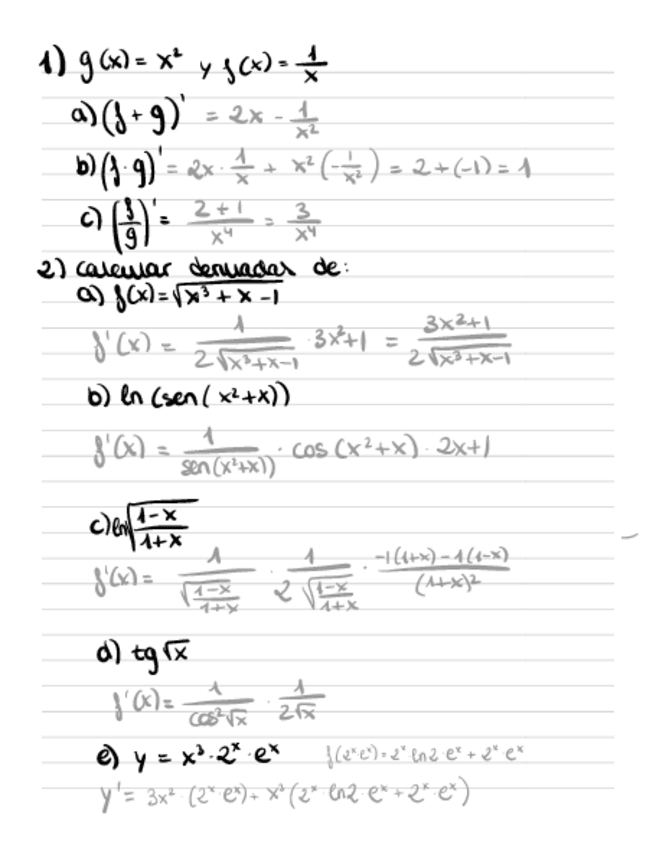 1) g(x) = x² y f(x) = 1/x
a) (f + g)' = 2x - 1/x²
b) (f · g)' = 2x · 1/x + x² (-1/x²) = 2 + (-1) = 1
c) (f/g)' = (2 + 1)/x⁴ = 3/x⁴
2) calcular derivadas de:
a) f(x) = √(x³ + x - 1)
f'(x) = 1/(2√(x³+x-1)) · 3x²+1 = (3x²+1)/(2√(x³+x-1))
b) ln (sen( x²+x))
f'(x) = 1/(sen(x²+x)) · cos (x²+x) · 2x+1
c) ln√((1-x)/(1+x))
f'(x) = 1/√((1-x)/(1+x)) · 1/(2√((1-x)/(1+x))) · (-1(1+x) - 1(1-x))/(1+x)²
d) tg √x
f'(x) = 1/(cos²√x) · 1/(2√x)
e) y = x³ · 2ˣ · eˣ f(2ˣeˣ) = 2ˣ ln2 · eˣ + 2ˣ · eˣ
y' = 3x² · (2ˣ eˣ) + x³ (2ˣ · ln2 · eˣ + 2ˣ · eˣ)